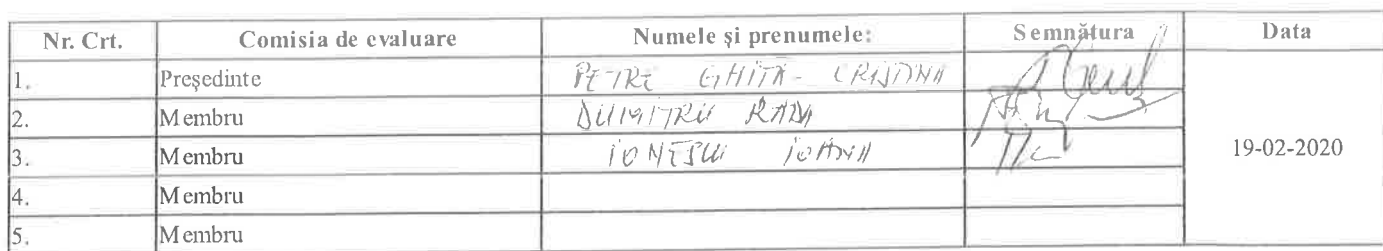 Nr. Crt. Comisia de evaluare Numele și prenumele: Semnătura Data
1. Președinte PETRE GHIȚĂ - CRISTINA
2. Membru DUMITRU RADA
3. Membru IONESCU IOANA 19-02-2020
4. Membru
5. Membru